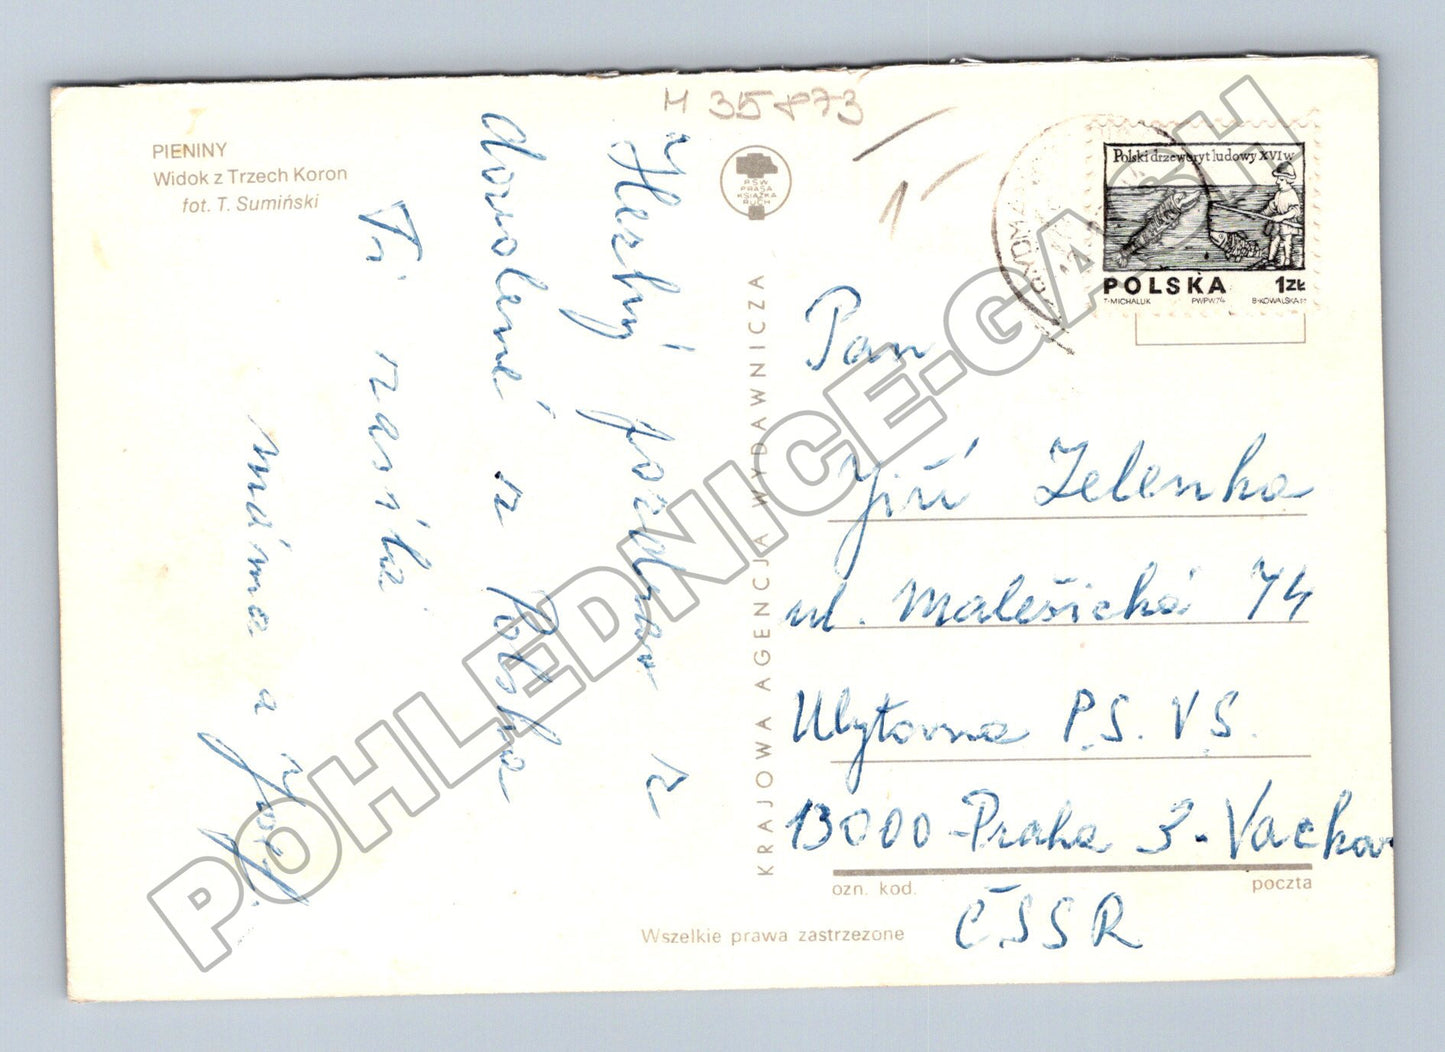 PIENINY
Widok z Trzech Koron
fot. T. Sumiński
M 35873
Hezký pozdrav z
dovolené z Polska
Ti zasílá
máma a Josef
PSW
PRASA
KSIĄŻKA
RUCH
KRAJOWA AGENCJA WYDAWNICZA
Polski drzeworyt ludowy XVI w
POLSKA 1ZŁ
T·MICHALUK PWPW'74 B·KOWALSKA
Pan
Jiří Zelenka
ul. Malešická 74
Ubytovna P.S. VS.
13000-Praha 3-Vackov
ozn. kod. poczta
ČSSR
Wszelkie prawa zastrzeżone
POHLEDNICE-GASH